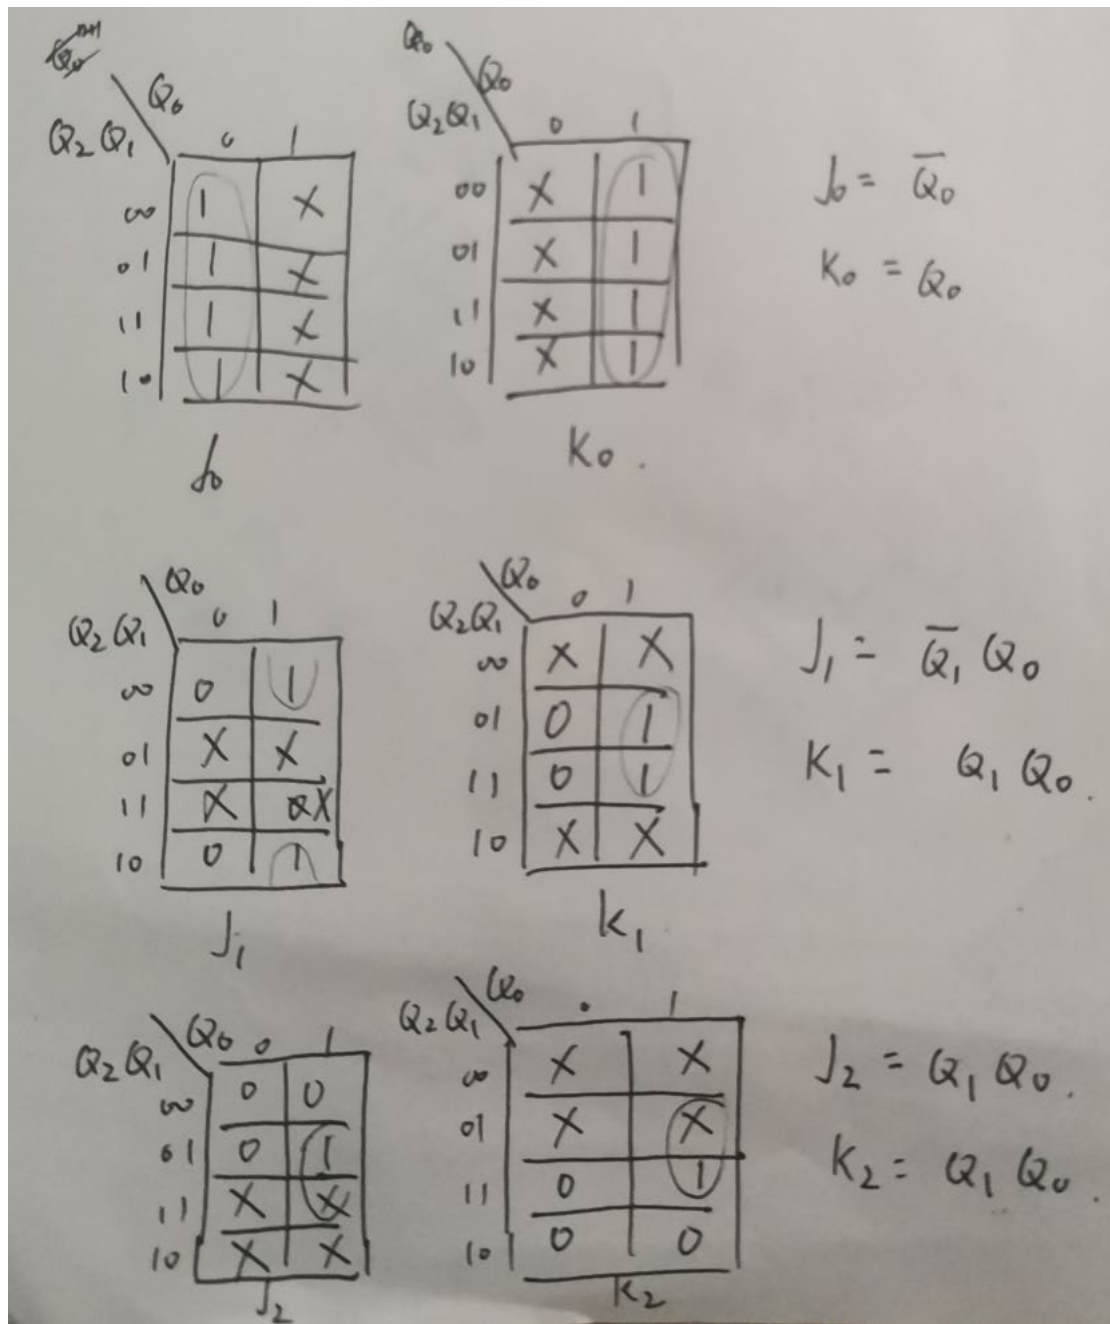 Q₀ Q₀
Q₂Q₁ 0 1
00 1 X
01 1 X
11 1 X
10 1 X
J₀
Q₀ Q₀
Q₂Q₁ 0 1
00 X 1
01 X 1
11 X 1
10 X 1
K₀.
J₀ = Q̅₀
K₀ = Q₀
Q₀
Q₂Q₁ 0 1
00 0 1
01 X X
11 X X
10 0 1
J₁
Q₀
Q₂Q₁ 0 1
00 X X
01 0 1
11 0 1
10 X X
K₁
J₁ = Q̅₁ Q₀
K₁ = Q₁ Q₀.
Q₀
Q₂Q₁ 0 1
00 0 0
01 0 1
11 X X
10 X X
J₂
Q₀
Q₂Q₁ 0 1
00 X X
01 X X
11 0 1
10 0 0
K₂
J₂ = Q₁ Q₀.
K₂ = Q₁ Q₀.